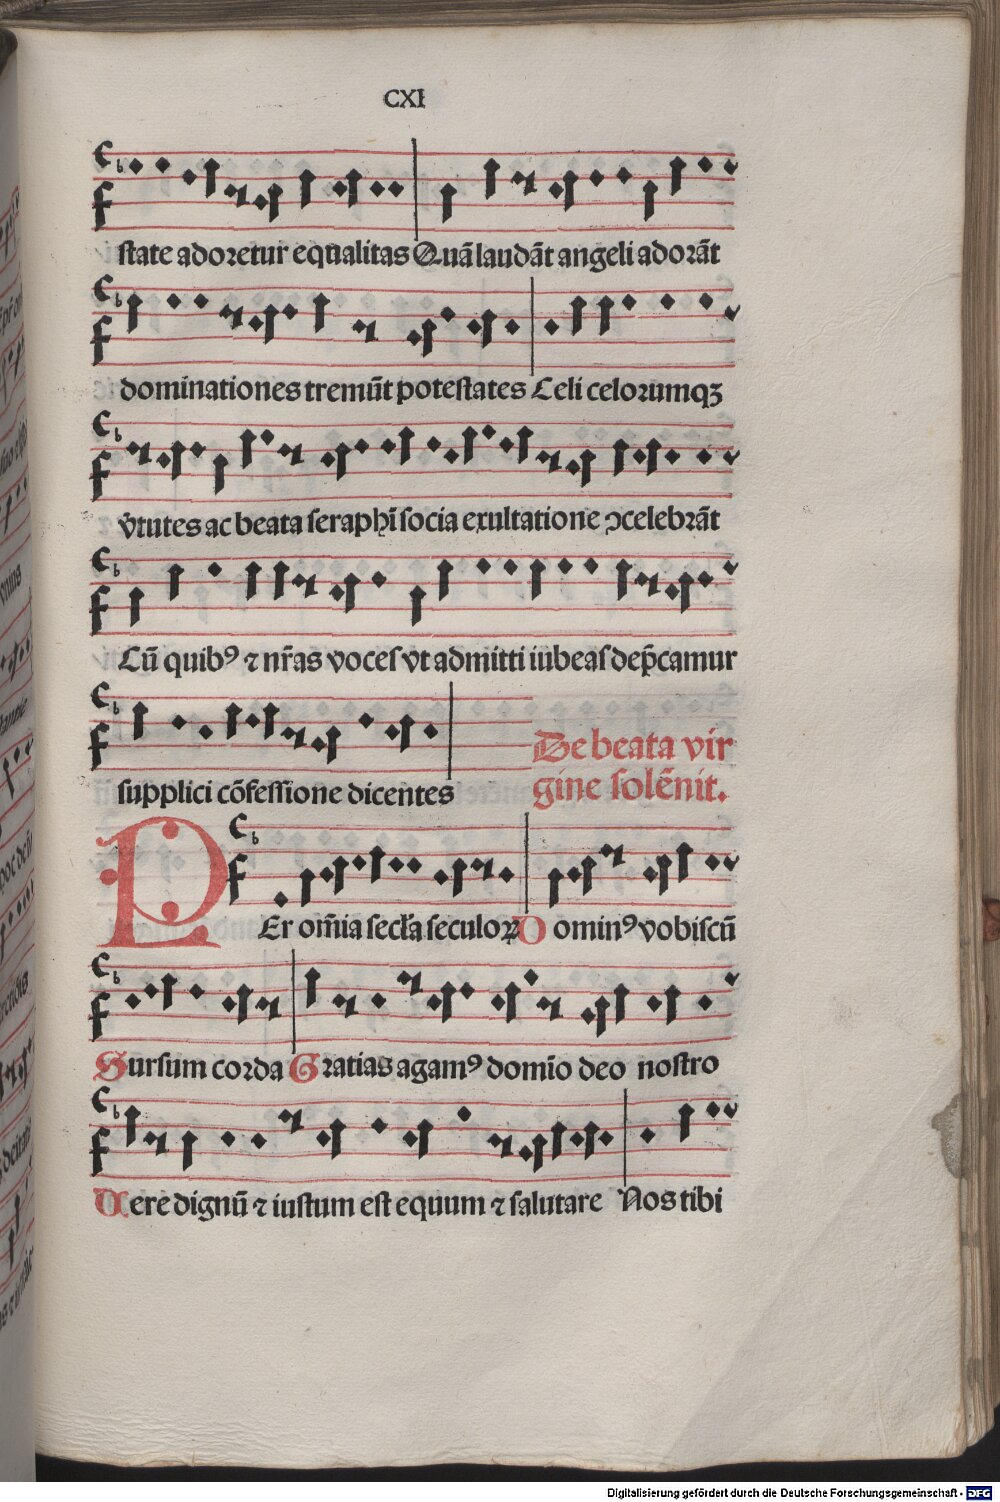 CXI
state adoretur equalitas Quā laudāt angeli adorāt
dominationes tremūt potestates Celi celorumqꝫ
v̓tutes ac beata seraphī socia exultatione ↄcelebrāt
Cū quibꝰ ⁊ nr̄as voces vt admitti iubeas dep̄camur
supplici cōfessione dicentes
De beata vir
gine solēnit.
PEr om̄ia secl̄a seculoꝝ Dominꝰ vobiscū
Sursum corda Gratias agamꝰ domīo deo nostro
Uere dignū ⁊ iustum est equum ⁊ salutare Nos tibi
Digitalisierung gefördert durch die Deutsche Forschungsgemeinschaft - DFG